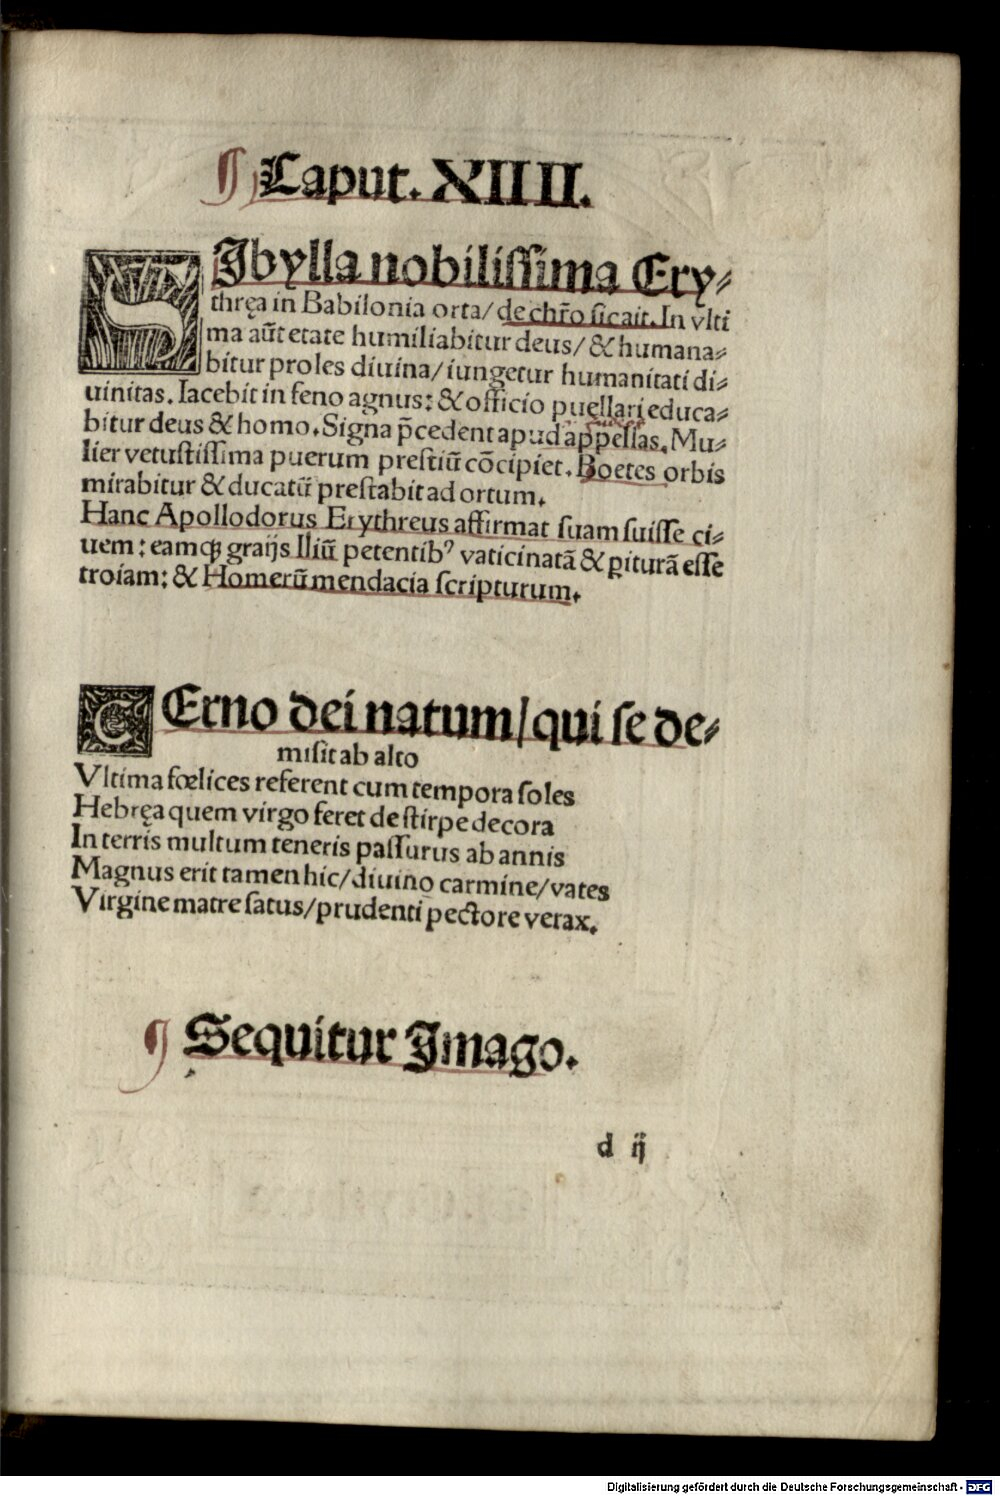 ¶ Caput. XIIII.
SIbylla nobiliſſima Ery⸗
thręa in Babilonia orta/ de chr̄o ſic ait. In vlti
ma aūt etate humiliabitur deus/ & humana⸗
bitur proles diuina/ iungetur humanitati di⸗
uinitas. Iacebit in feno agnus: & officio puellari educa⸗
bitur deus & homo. Signa p̄cedent apud appellas. Mu⸗
lier vetuſtiſſima puerum preſtiū cōcipiet. Boetes orbis
mirabitur & ducatū preſtabit ad ortum.
Hanc Apollodorus Erythreus affirmat ſuam fuiſſe ci⸗
uem: eamqꝫ graijs Iliū petentibꝰ vaticinatā & ꝑiturā eſſe
troiam: & Homerū mendacia ſcripturum.
CErno dei natum/ qui ſe de⸗
miſit ab alto
Vltima fœlices referent cum tempora ſoles
Hebręa quem virgo feret de ſtirpe decora
In terris multum teneris paſſurus ab annis
Magnus erit tamen hic/ diuino carmine/ vates
Virgine matre ſatus/ prudenti pectore verax.
¶ Sequitur Imago.
d ij
Digitalisierung gefördert durch die Deutsche Forschungsgemeinschaft - DFG